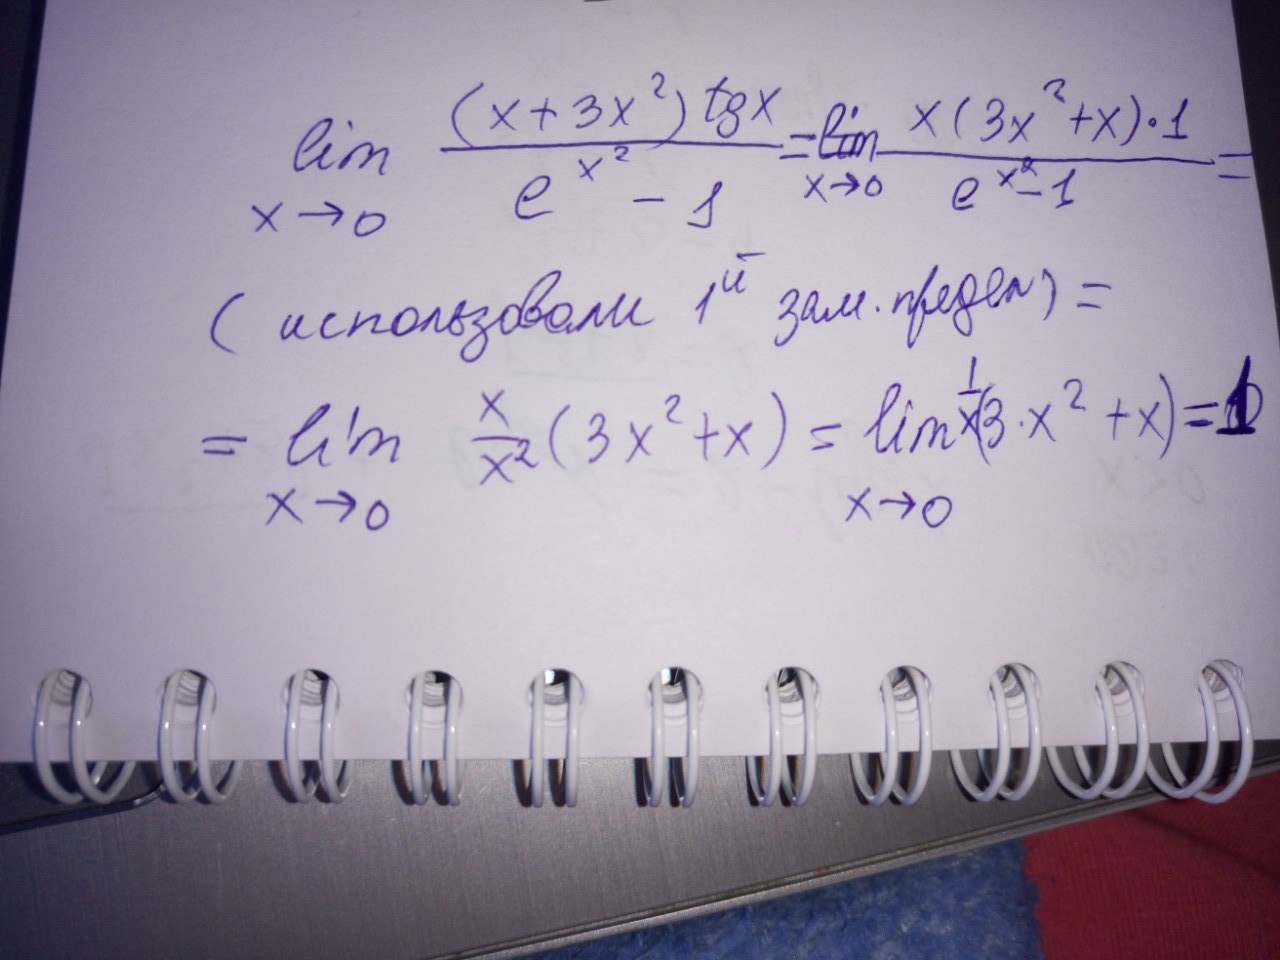 lim x→0 (x+3x²)tgx / e^x² - 1 = lim x→0 x(3x²+x)·1 / e^x²-1 =
(использовали 1й зам. предел) =
= lim x→0 x/x² (3x²+x) = lim x→0 1/x (3·x²+x) = 1